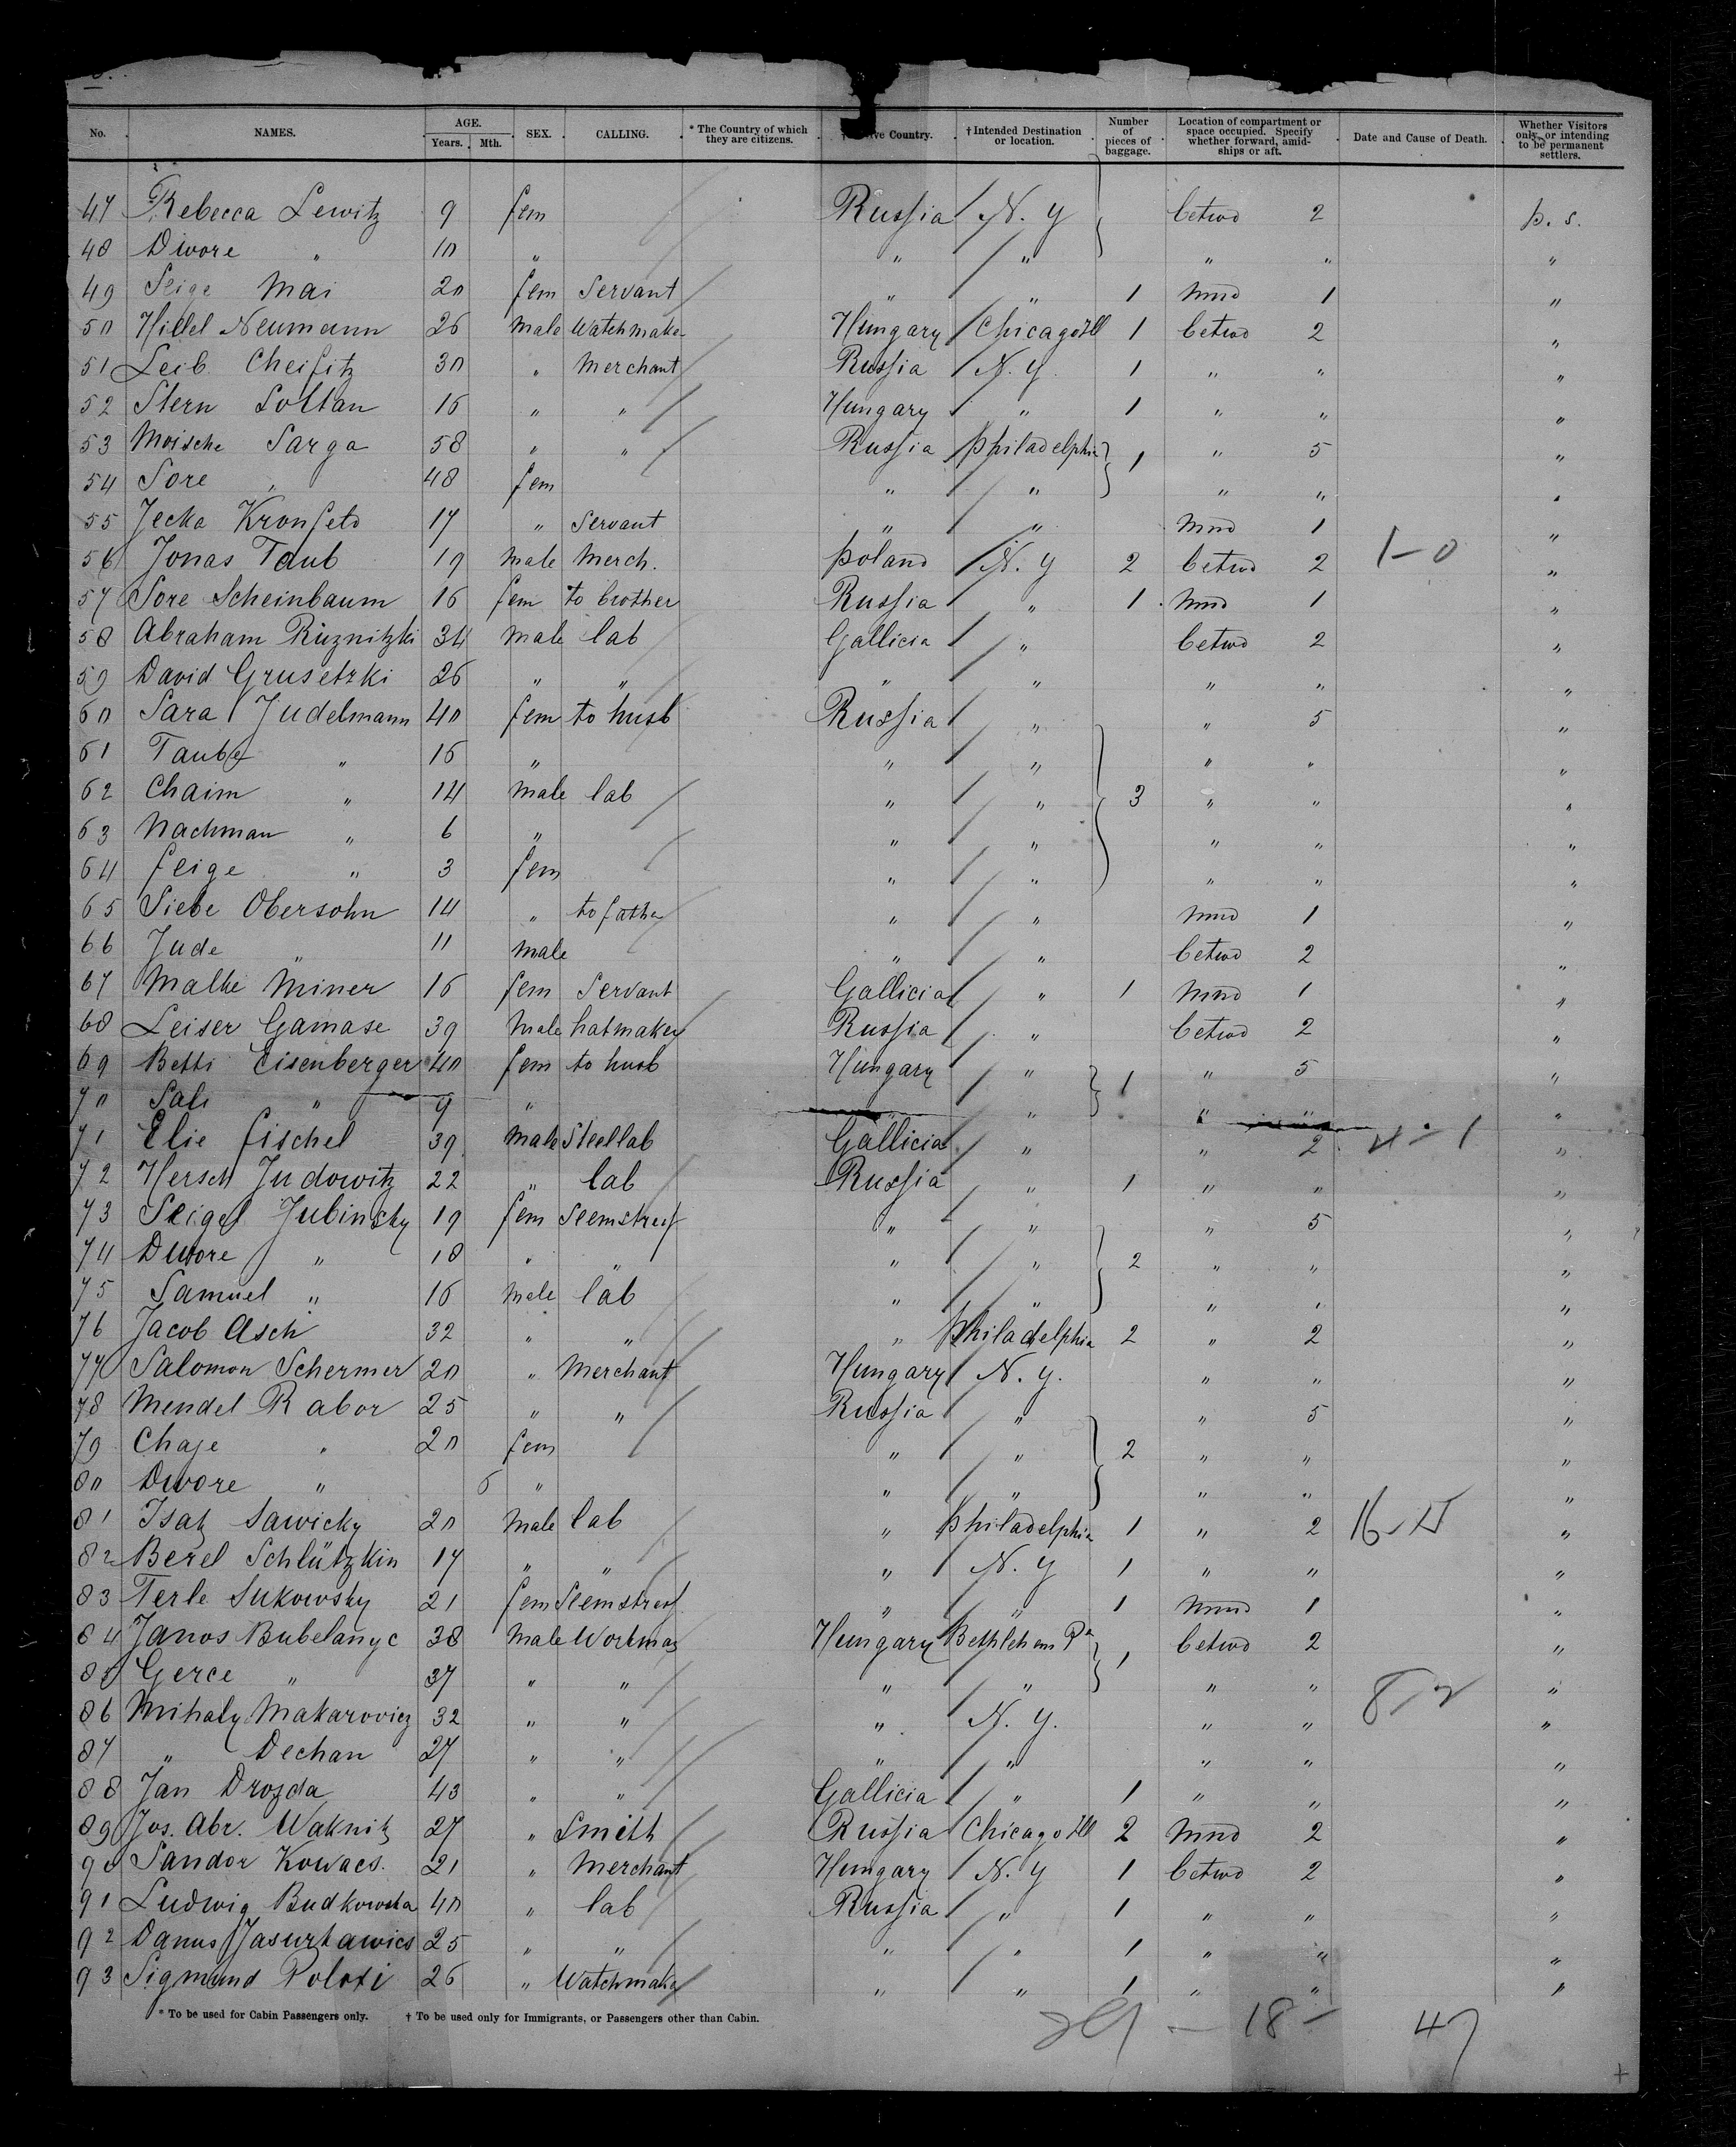 No. NAMES. AGE. Years. Mth. SEX. CALLING. * The Country of which they are citizens. Country. † Intended Destination or location. Number of pieces of baggage. Location of compartment or space occupied. Specify whether forward, amidships or aft. Date and Cause of Death. Whether Visitors only, or intending to be permanent settlers.
47 Rebecca Lewitz 9 fem Russia N. Y betwd 2 p. s.
48 Dwore " 10 " " " " " "
49 Feige Mai 20 fem Servant " " 1 mnd 1 "
50 Hillel Neumann 26 male Watchmaker Hungary Chicago Ill 1 betwd 2 "
51 Leib Cheifitz 30 " Merchant Russia N. Y. 1 " " "
52 Stern Soltan 16 " " Hungary " 1 " " "
53 Moische Sarga 58 " " Russia Philadelphia 1 " 5 "
54 Sore " 48 fem " " " " "
55 Jecka Kronfeld 17 " Servant " " mnd 1 "
56 Jonas Taub 19 male Merch. Poland N. Y 2 betwd 2 1-0 "
57 Sore Scheinbaum 16 fem to brother Russia " 1 mnd 1 "
58 Abraham Ruznitzki 34 male lab Gallicia " betwd 2 "
59 David Grusetzki 26 " " " " " " "
60 Sara Judelmann 40 fem to husb Russia " " 5 "
61 Taube " 16 " " " " " "
62 Chaim " 14 male lab " " 3 " " "
63 Nachman " 6 " " " " " "
64 Feige " 3 fem " " " " "
65 Siebe Obersohn 14 " to father " " mnd 1 "
66 Jude " 11 male " " betwd 2 "
67 Malke Miner 16 fem Servant Gallicia " 1 mnd 1 "
68 Leiser Gamase 39 male hatmaker Russia " betwd 2 "
69 Betti Eisenberger 40 fem to husb Hungary " 1 " 5 "
70 Sali " 9 " " " " "
71 Elie Fischel 39 male Steellab Gallicia " " 2 4-1 "
72 Hersch Judowitz 22 " lab Russia " 1 " " "
73 Feigel Jubinsky 19 fem Seemstress " " " 5 "
74 Dwore " 18 " " " " 2 " " "
75 Samuel " 16 male lab " " " " "
76 Jacob Asch 32 " " " Philadelphia 2 " 2 "
77 Salomon Schermer 20 " Merchant Hungary N. Y. " " "
78 Mendel Rabor 25 " " Russia " " 5 "
79 Chaje " 20 fem " " 2 " " "
80 Dwore " 6 " " " " " "
81 Isak Sawicky 20 male lab " Philadelphia 1 " 2 "
82 Berel Schlützkin 17 " " " N. Y 1 " " "
83 Terle Sukowsky 21 fem Seemstress " " 1 mnd 1 "
84 Janos Bubelanyc 38 male Workman Hungary Bethlehem Pa 1 betwd 2 "
85 Gerce " 37 " " " " " " "
86 Mihaly Makarovicz 32 " " " N. Y. " " "
87 " Dechan 27 " " " " " " "
88 Jan Drozda 43 " " Gallicia " 1 " " "
89 Jos. Abr. Waknitz 27 " Smith Russia Chicago Ill 2 mnd 2 "
90 Sandor Kowacs. 21 " Merchant Hungary N. Y 1 betwd 2 "
91 Ludwig Budkowska 40 " lab Russia " 1 " " "
92 Danus 25 " " " " 1 " " "
93 Sigmund Poloti 26 " Watchmaker " " 1 " " "
* To be used for Cabin Passengers only. † To be used only for Immigrants, or Passengers other than Cabin.
29 - 18 - 47